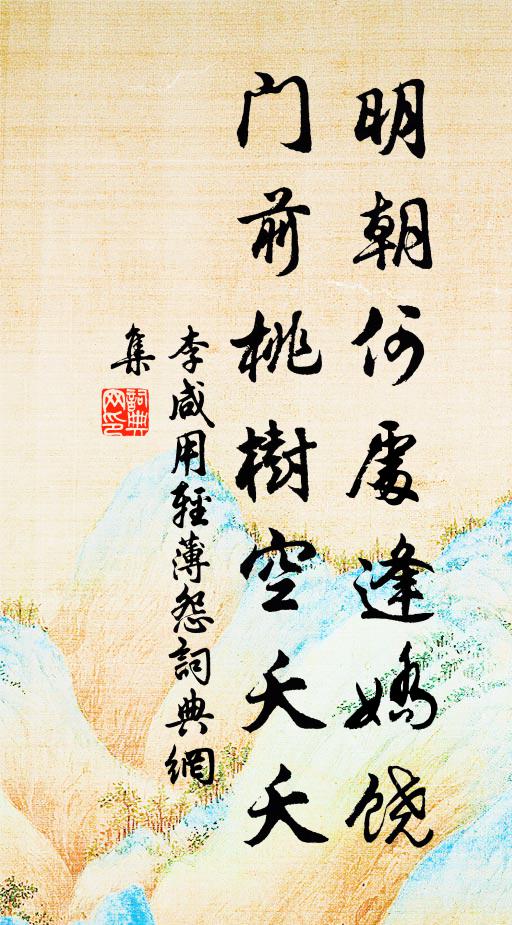 明朝何處逢嬌饶
门前桃樹空夭夭
李咸用輕薄怨詞典網
集
詞典
网印